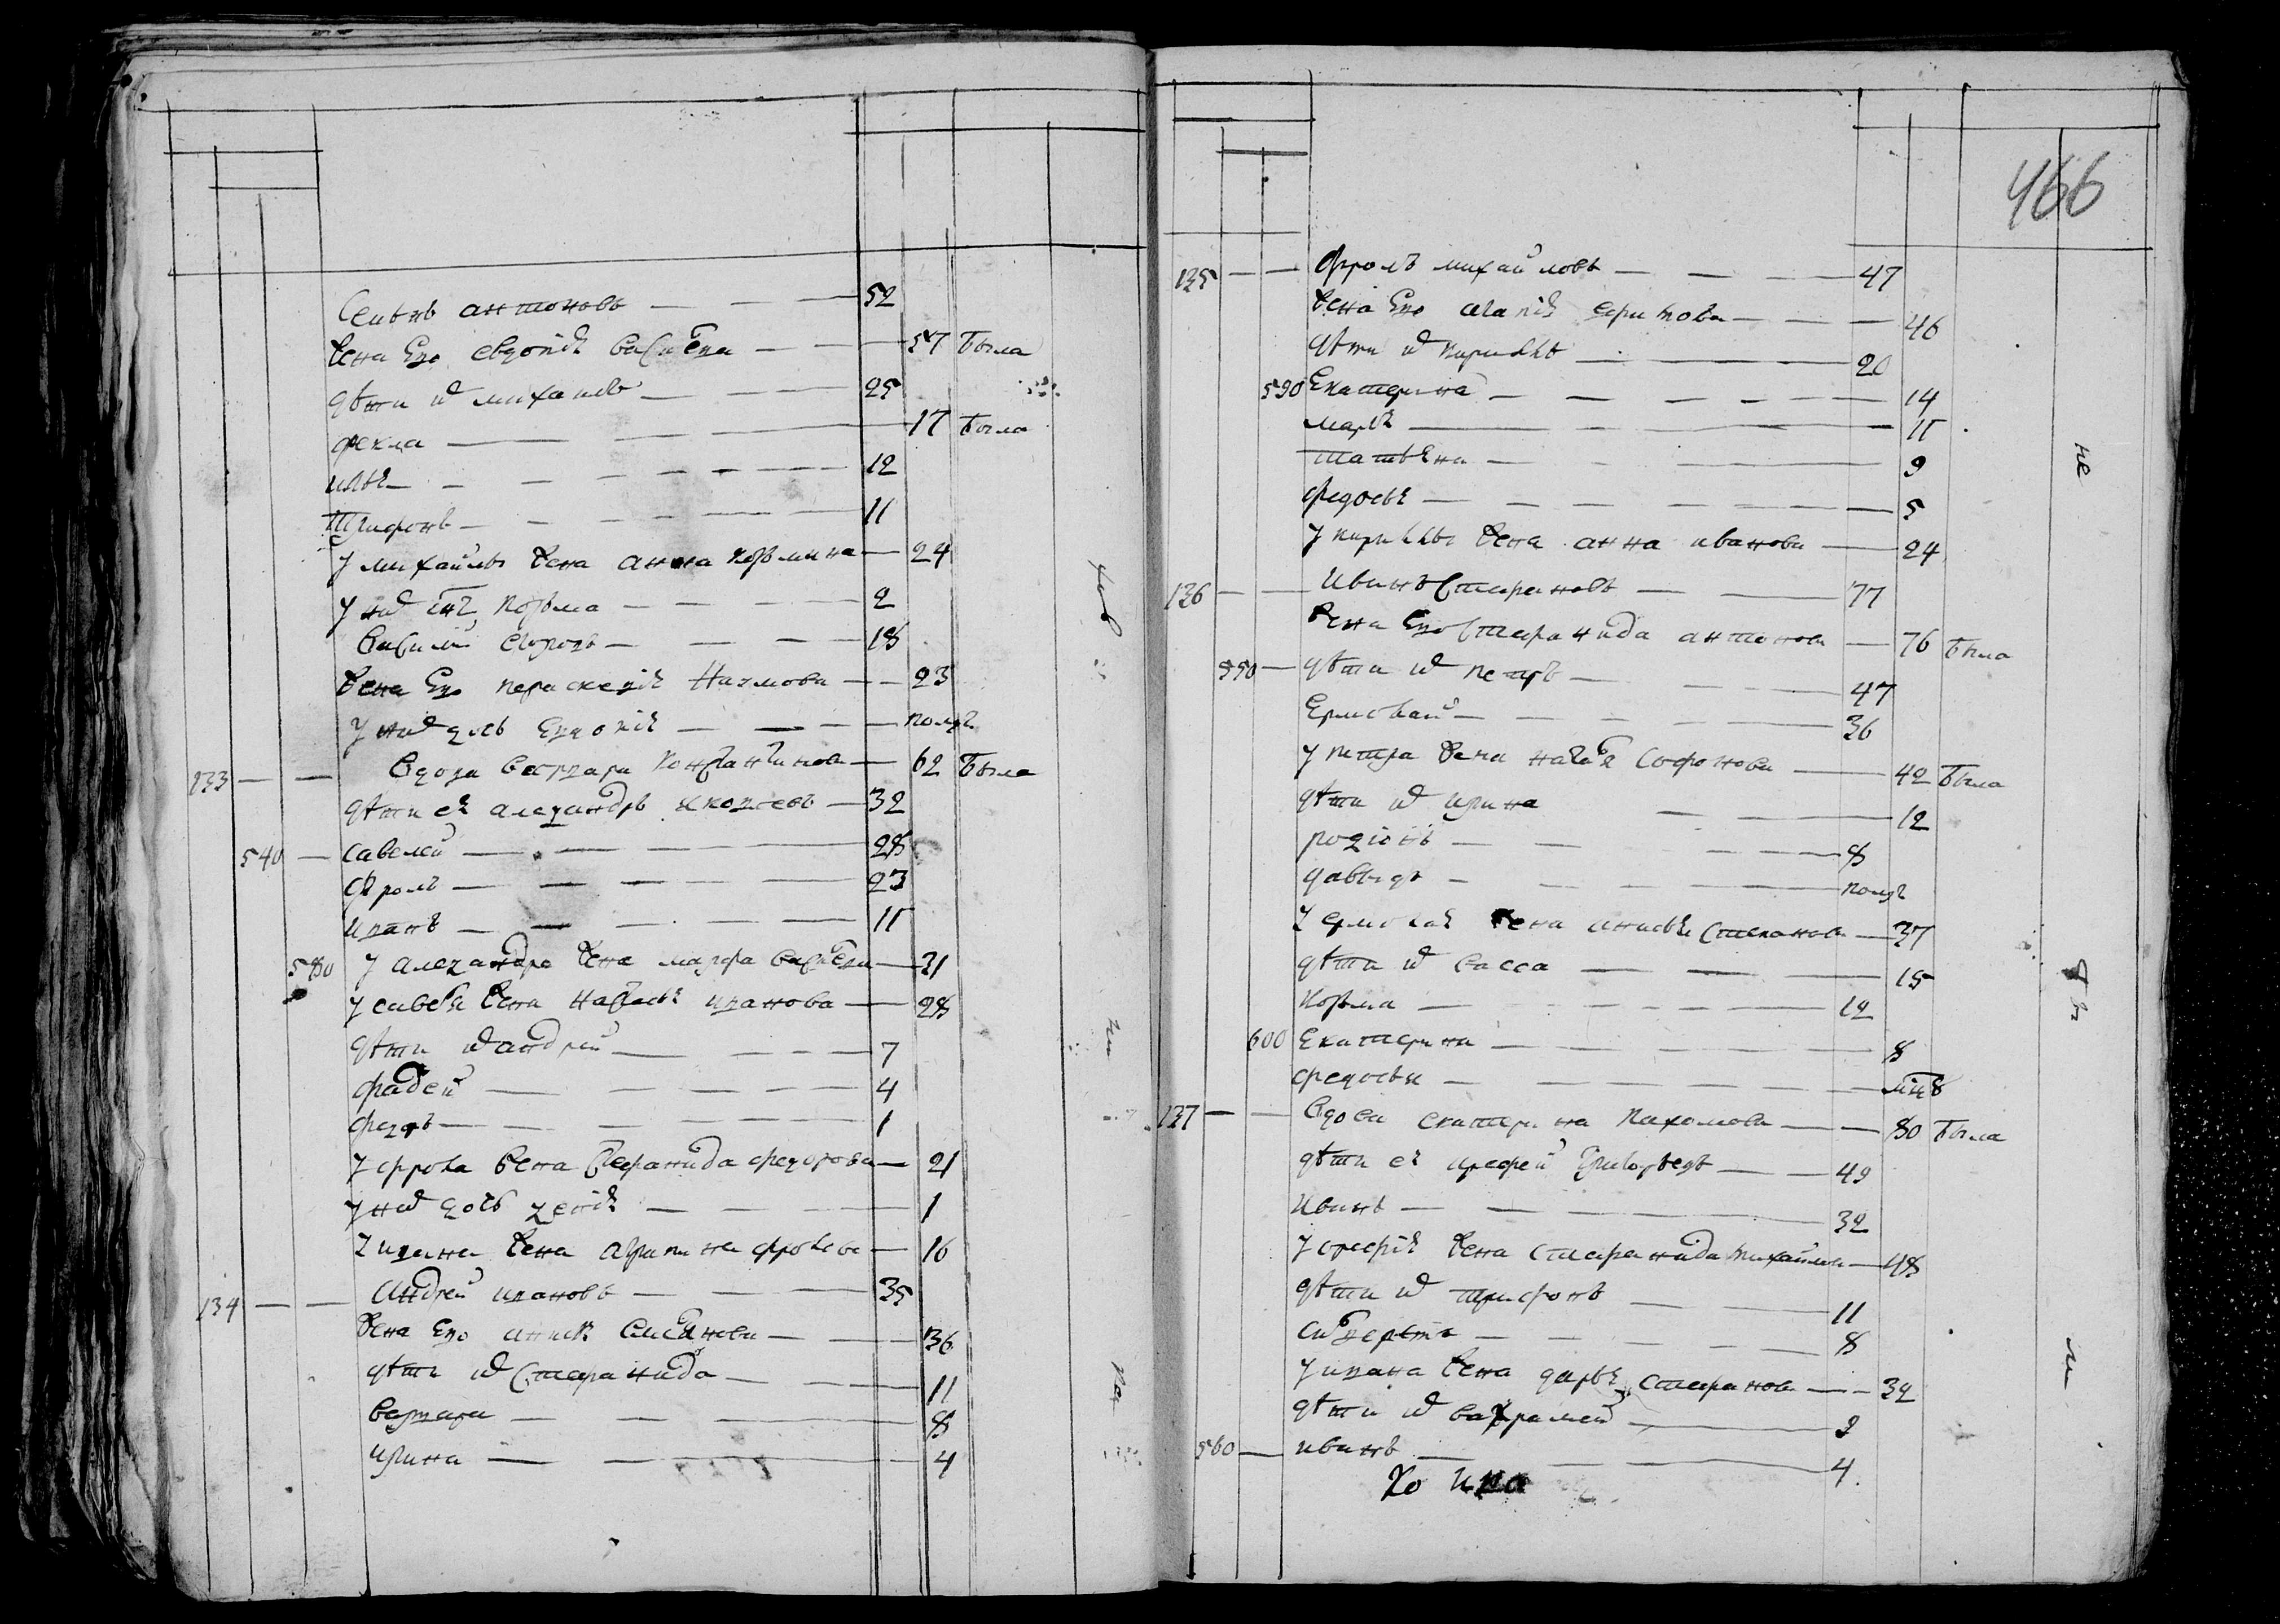 Семенъ антоновъ — — — 52
Жена Его евдокiя васильева — — — 57 была
дѣти их михаила — — — 25
фекла — — — 17 была
илья — — — 12
Трифонъ — — — 11
у михайлы жена анна козмина — 24
у них сынъ козма — — — 2
василий — — — 18
жена Его параскевiя Наумова — — 23
у них дочь Евдокiя — — — полуг
133 — — вдова варвара константинова — 62 была
дѣти ея александръ яковлевъ — 32
540 — савелей — — — 28
Фролъ — — — 23
иванъ — — — 11
580 у александра жена марфа васильева — 31
у савелья жена настасья иванова — 28
дѣти их андрей — — — 7
фадей — — — 4
федоръ — — — 1
у фрола жена стефанида федорова — 21
у них дочь — — — 1
у ивана жена агрипина фролова — 16
134 — — Андрей ивановъ — — — 35
жена Его — — — 36
дѣти их Стефанида — — — 11
варвара — — — 8
ирина — — — 4
466
135 — — Фролъ михайловъ — — — 47
жена Его — — — 46
дѣти их кирилла — — — 20
590 Екатерина — — — 14
марья — — — 11
татьяна — — — 9
федосья — — — 5
у кириллы жена анна иванова — 24
136 — — Иванъ Стефановъ — — 77
жена Его Стефанида антонова — 76 была
550 — дѣти их петръ — — — 47
Ермолай — — — 36
у петра жена наталья Софонова — 42 была
дѣти их ирина — — — 12
родiонъ — — — 8
давыдъ — — — полуг
у ермолая жена анисья Степанова — 37
дѣти их васса — — — 15
козма — — — 12
600 Екатерина — — — 8
федосья — — —
137 — — вдова екатерина Пахомова — — 80 была
дѣти ея арефей Григорьевъ — — 49
Иванъ — — — 32
у орефiя жена стефанида михайлова — 48
дѣти их трифонъ — — — 11
— — — 8
у ивана жена дарья стефанова — — 32
дѣти их варфаламей — — 9
560 — иванъ — — — 4